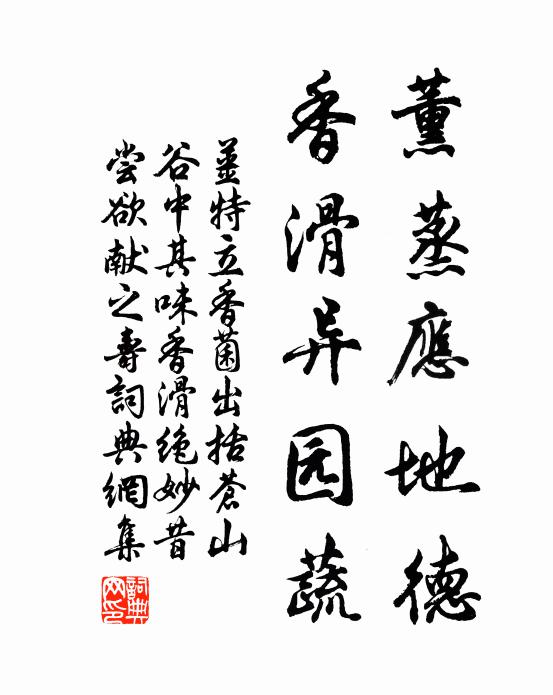 薰蒸應地德
香滑异园蔬
姜特立香菌出括蒼山
谷中其味香滑绝妙昔
尝欲献之壽詞典網集
詞典網印